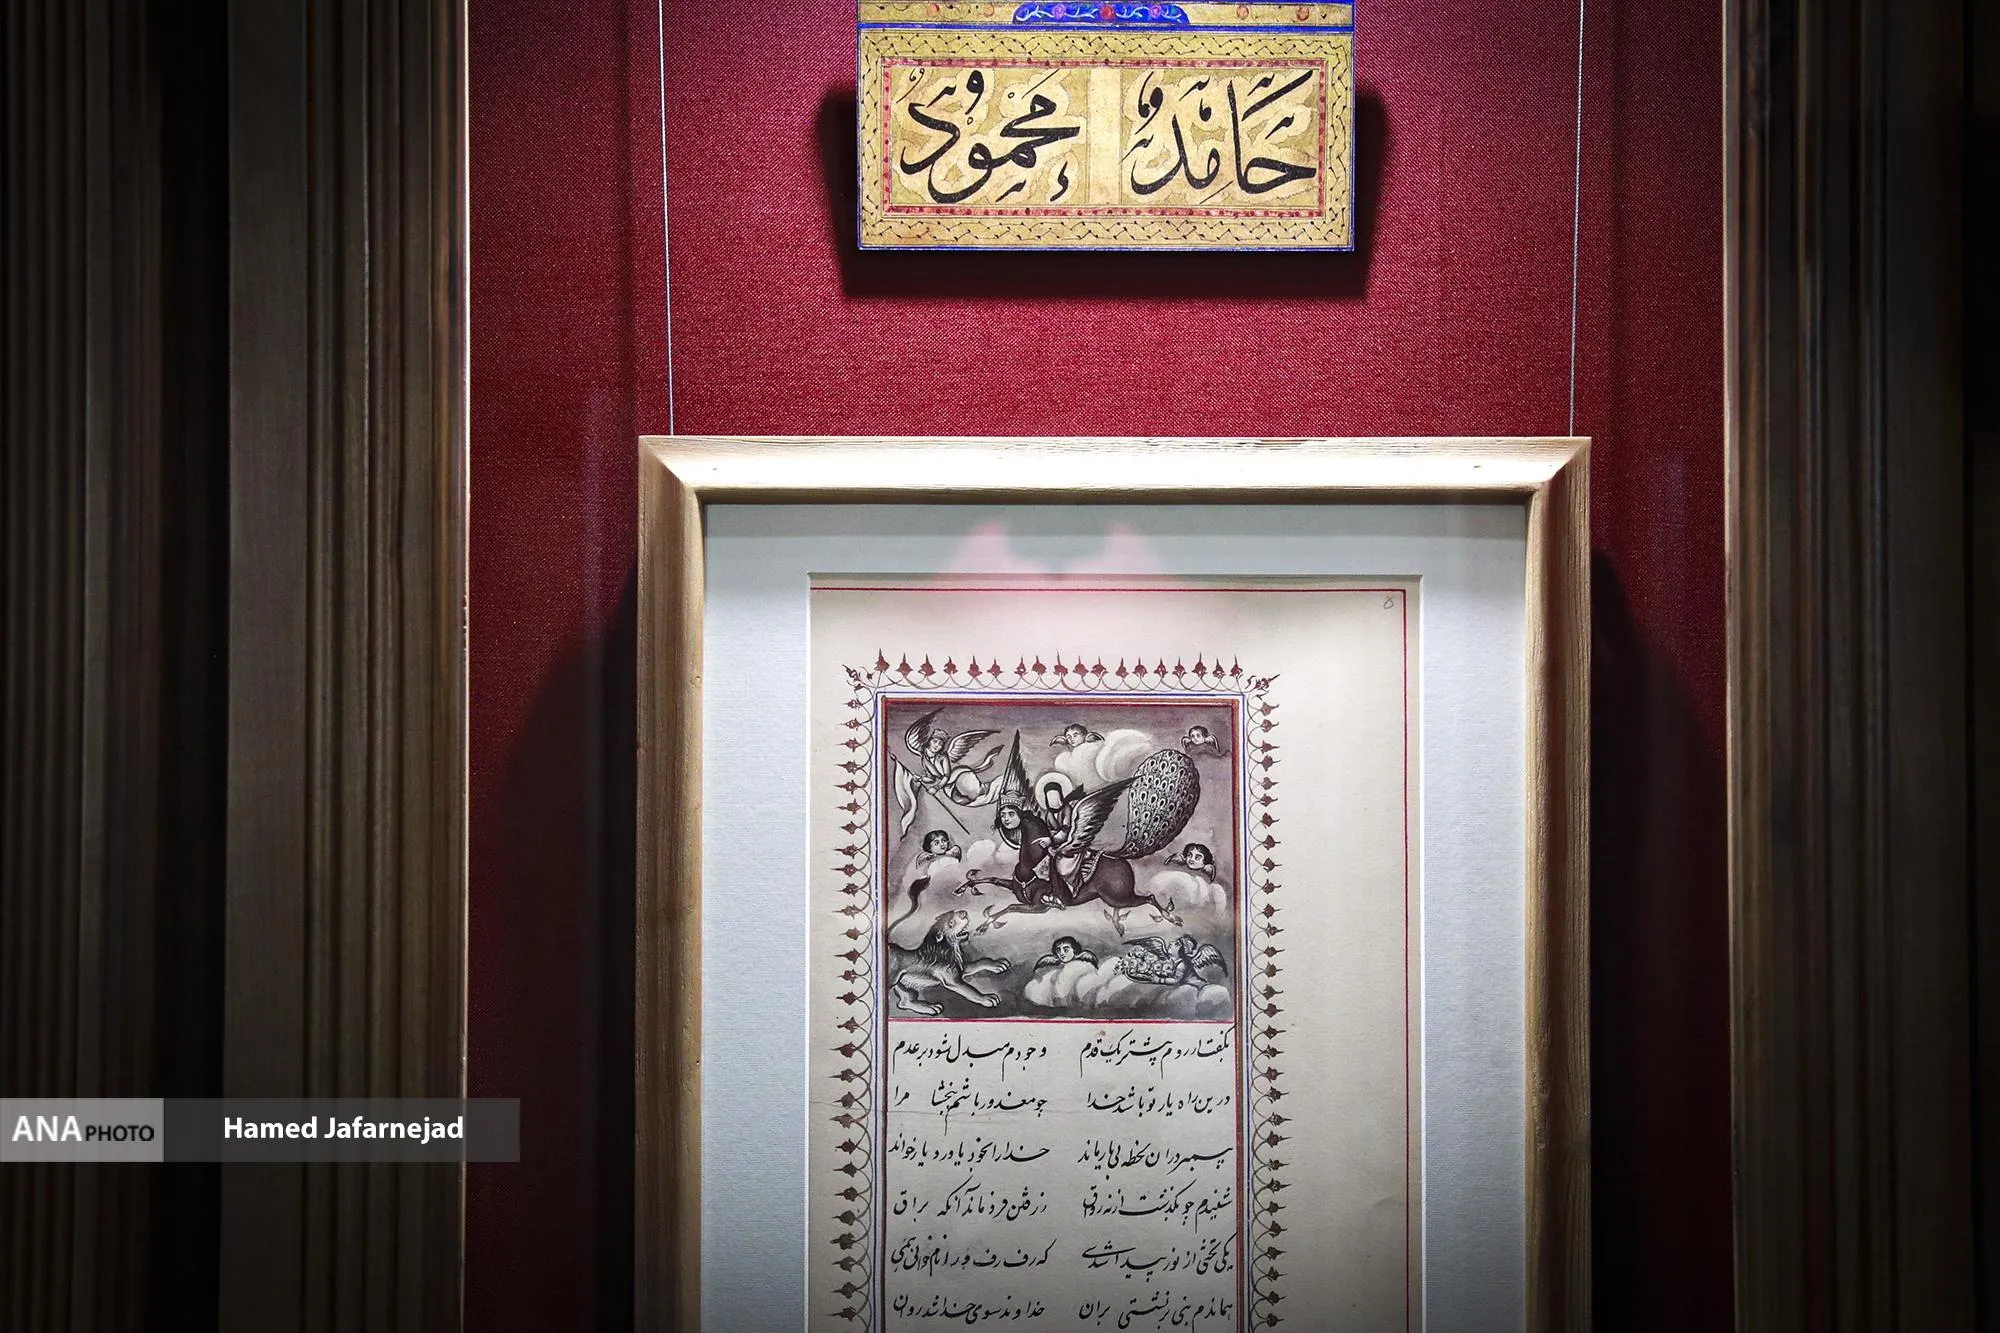 حَامِدٌ مَحْمُودٌ
۵
بگفت ار روم پیشتر یک قدم وجودم مبدل شود بر عدم
درین راه یار تو باشد خدا چو معذور باشم ببخشا مرا
پیمبر دران لحظه بی یار ماند خدا را بخود یاور و یار خواند
شنیدم چو بگذشت از نه رواق ز رفتن فرو ماند آنکه براق
یکی تختی از نور پیدا شدی که رفرف ورا نام خوانی همی
هماندم نبی بر نشستی بران خداوند سوی خدا شد روان
ANAPHOTO Hamed Jafarnejad